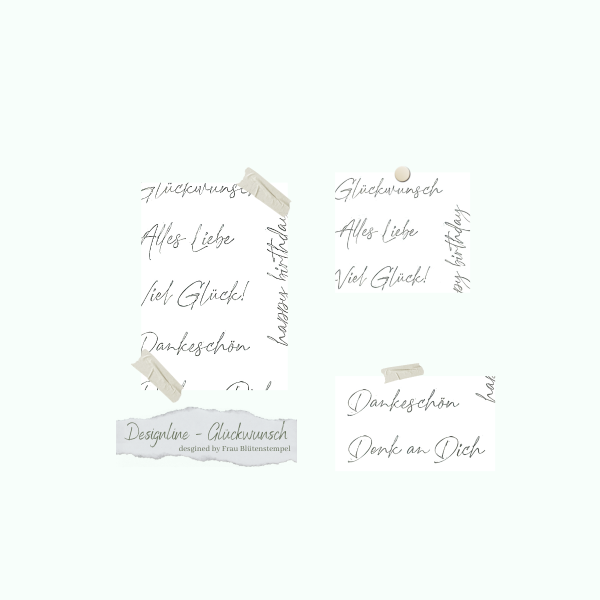 Glückwunsch
Alles Liebe
Viel Glück!
Dankeschön
happy birthday
Designline - Glückwunsch
desgined by Frau Blütenstempel
Glückwunsch
Alles Liebe
Viel Glück!
py birthday
Dankeschön
Denk an Dich